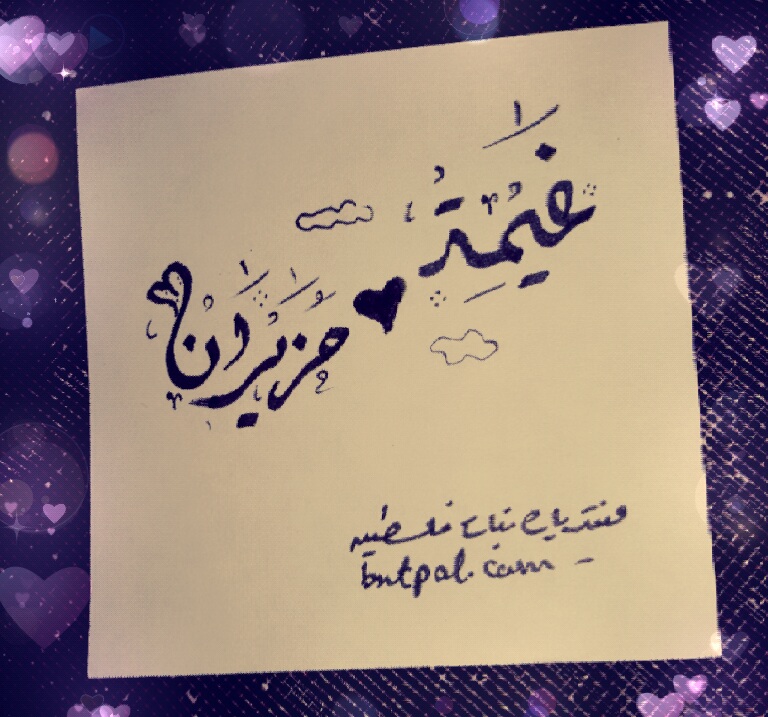 غَيْمَةِ ♥ حُزَيْرَان
منتديات بنات فلسطين
bntpal.com -